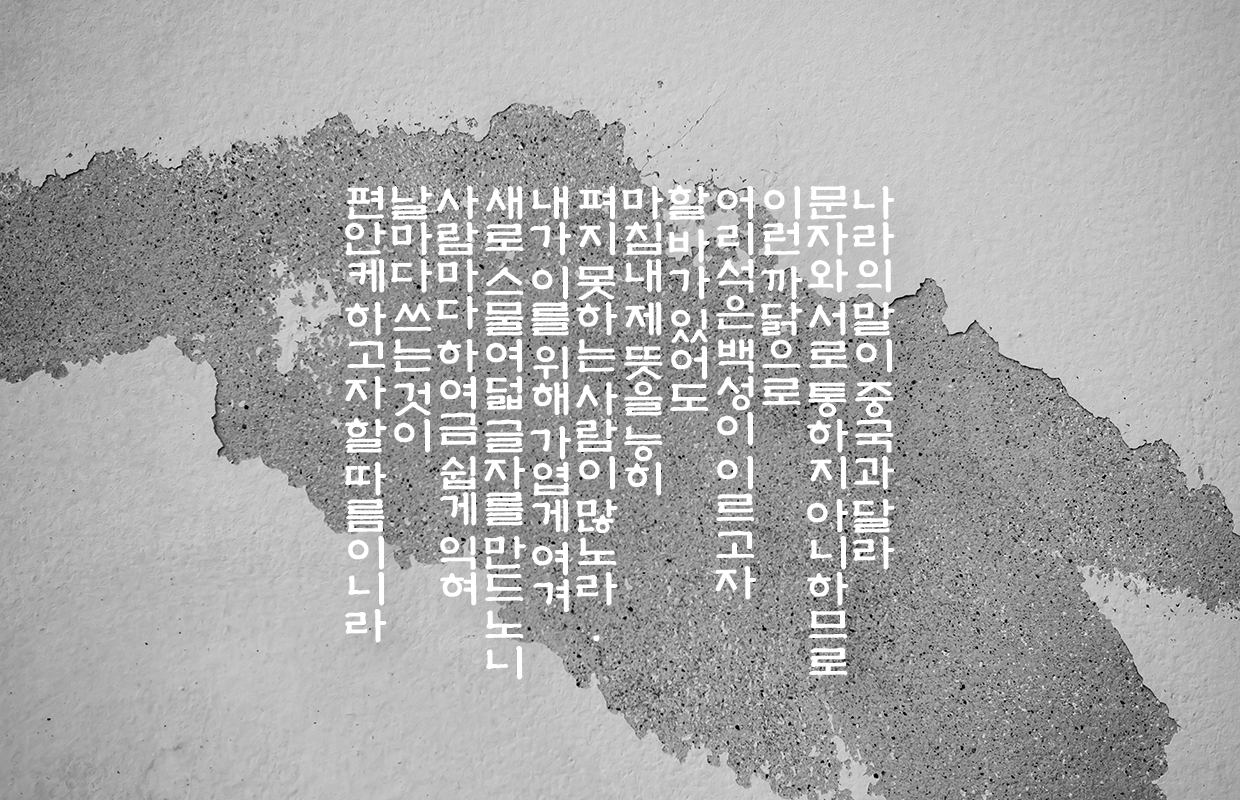 나라의말이중국과달라
문자와서로통하지아니하므로
이런까닭으로
어리석은백성이이르고자
할바가있어도
마침내제뜻을능히
펴지못하는사람이많노라.
내가이를위해가엽게여겨
새로스물여덟글자를만드노니
사람마다하여금쉽게익혀
날마다쓰는것이
편안케하고자할따름이니라